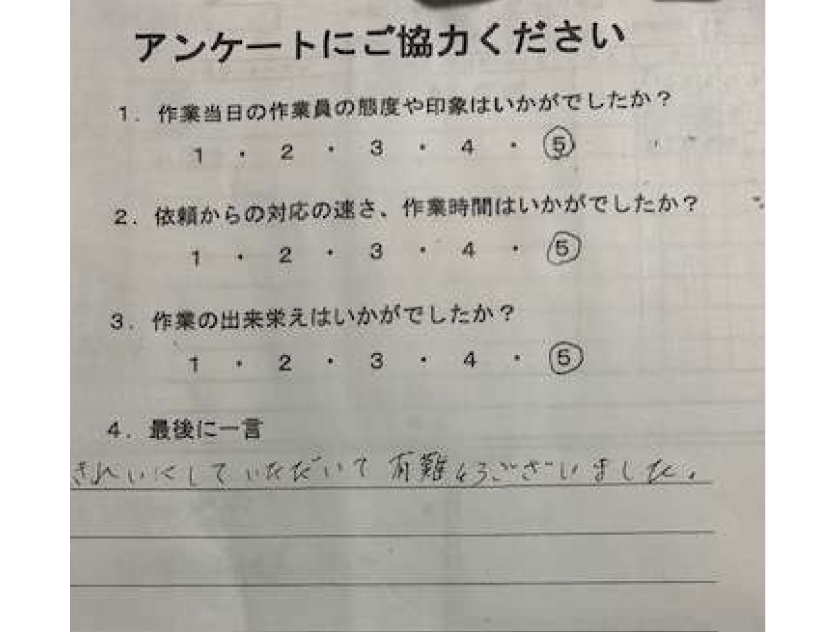 アンケートにご協力ください
1. 作業当日の作業員の態度や印象はいかがでしたか？
1 ・ 2 ・ 3 ・ 4 ・ 5
2. 依頼からの対応の速さ、作業時間はいかがでしたか？
1 ・ 2 ・ 3 ・ 4 ・ 5
3. 作業の出来栄えはいかがでしたか？
1 ・ 2 ・ 3 ・ 4 ・ 5
4. 最後に一言
きれいにしていただいて有難ようございました。